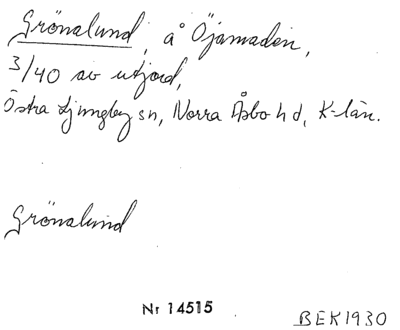 Grönalund, å Öjamaden,
3/40 av utjord,
Östra Ljungby sn, Norra Åsbo hd, K-län.
Grönalund
Nr 14515
BEK1930